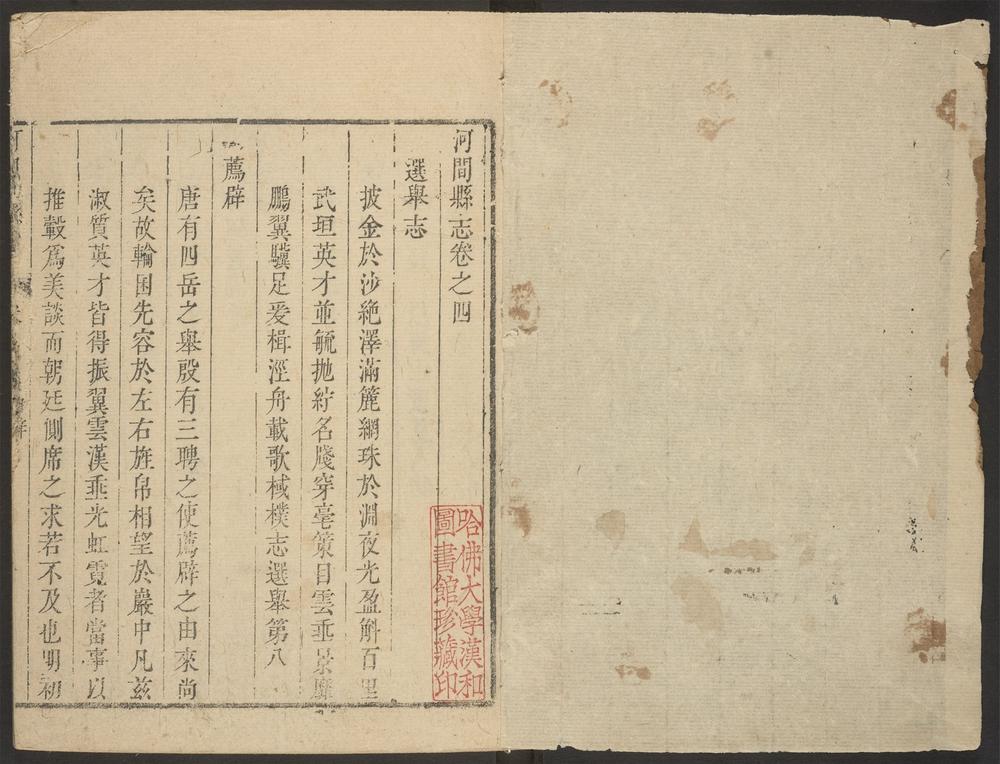 河間縣志卷之四
選舉志
披金於沙絶澤滿簏網珠於淵夜光盈斛百里
武垣英才並毓抛紵名牋穿毫策目雲垂景靡
鵬翼驥足爰楫淫舟載歌棫樸志選舉第八
薦辟
唐有四岳之舉殷有三聘之使薦辟之由來尚
矣故輪囷先容於左右旌帛相望於巖中凡茲
淑質英才皆得振翼雲漢垂光虹霓者當事以
推轂爲美談而朝廷側席之求若不及也明初
哈佛大學漢和
圖書館珍藏印